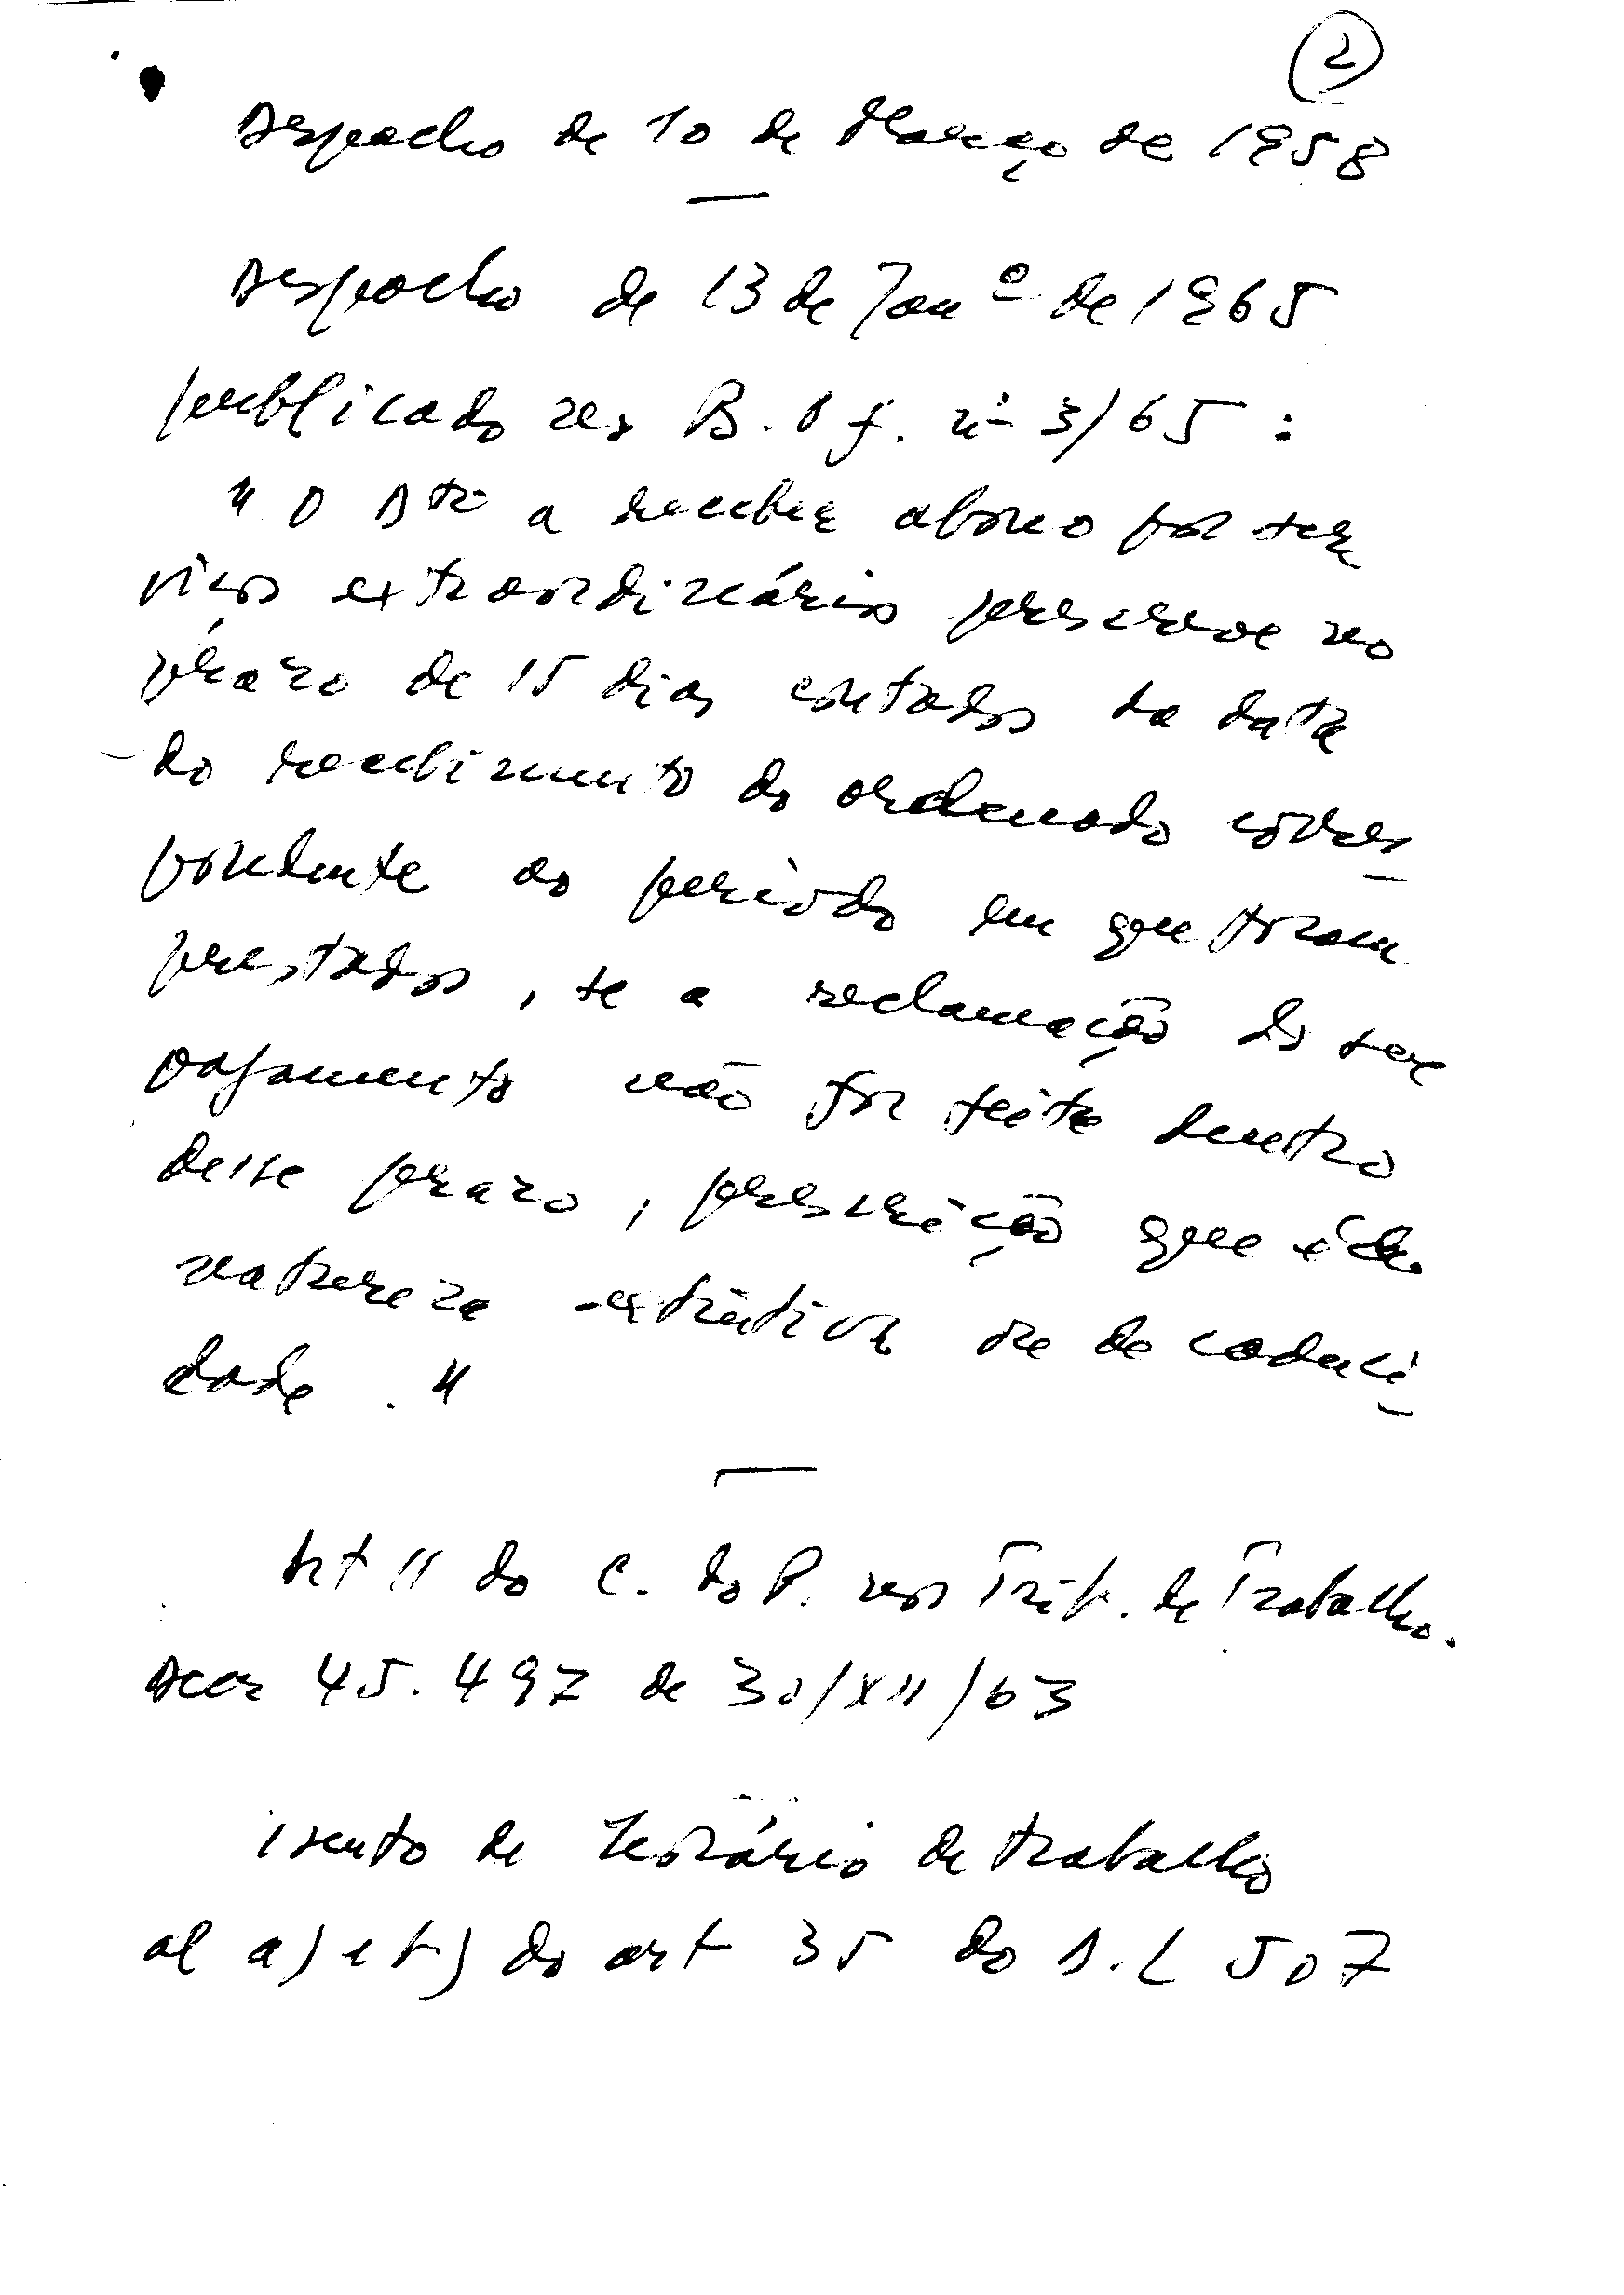 2
Despacho de 10 de Março de 1958
Despacho de 13 de Janº de 1965
publicado no B. Of. nº 3/65 :
" O Dtº a receber abono por ser
viços extraordinários prescreve no
prazo de 15 dias contados da data
do recebimento do ordenado corres
pondente ao período em que foram
prestados, se a reclamação do seu
pagamento não for feita dentro
desse prazo, prescrição que é de
natureza extintiva ou de caduci
dade. "
Art 11 do C. do P. nos Trib. de Trabalho.
45.497 de 30/XII/63
isento de horário de trabalho
al a) e b) do art 35 do D.L 507